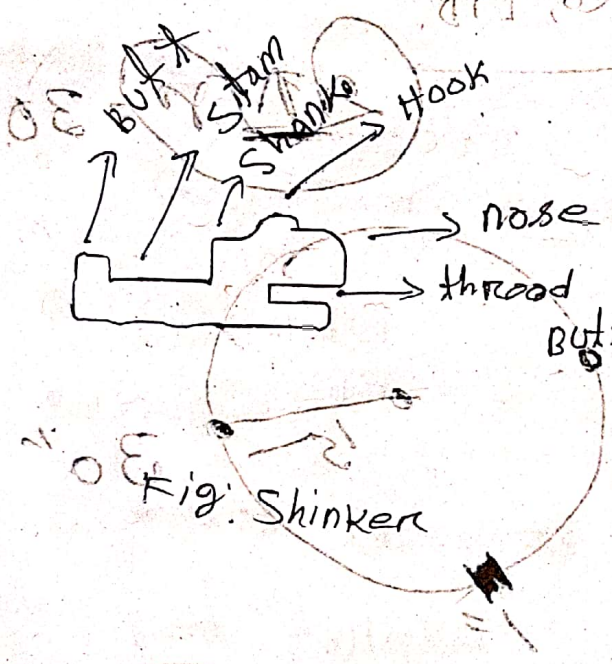 Butt
Stam
Shank
Hook
nose
throad
But
Fig: Shinker